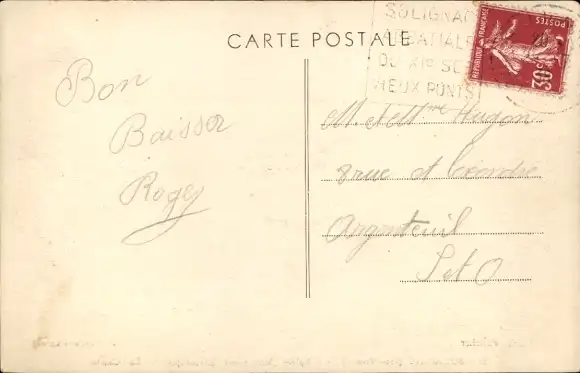 CARTE POSTALE
SOLIGNAC
ABBATIALE
DU XIe SE
VIEUX PONTS
REPUBLIQUE FRANÇAISE
POSTES
30c
Bon
Baiser
Roger
M. et Mme Hugon
rue et
Argenteuil
S et O